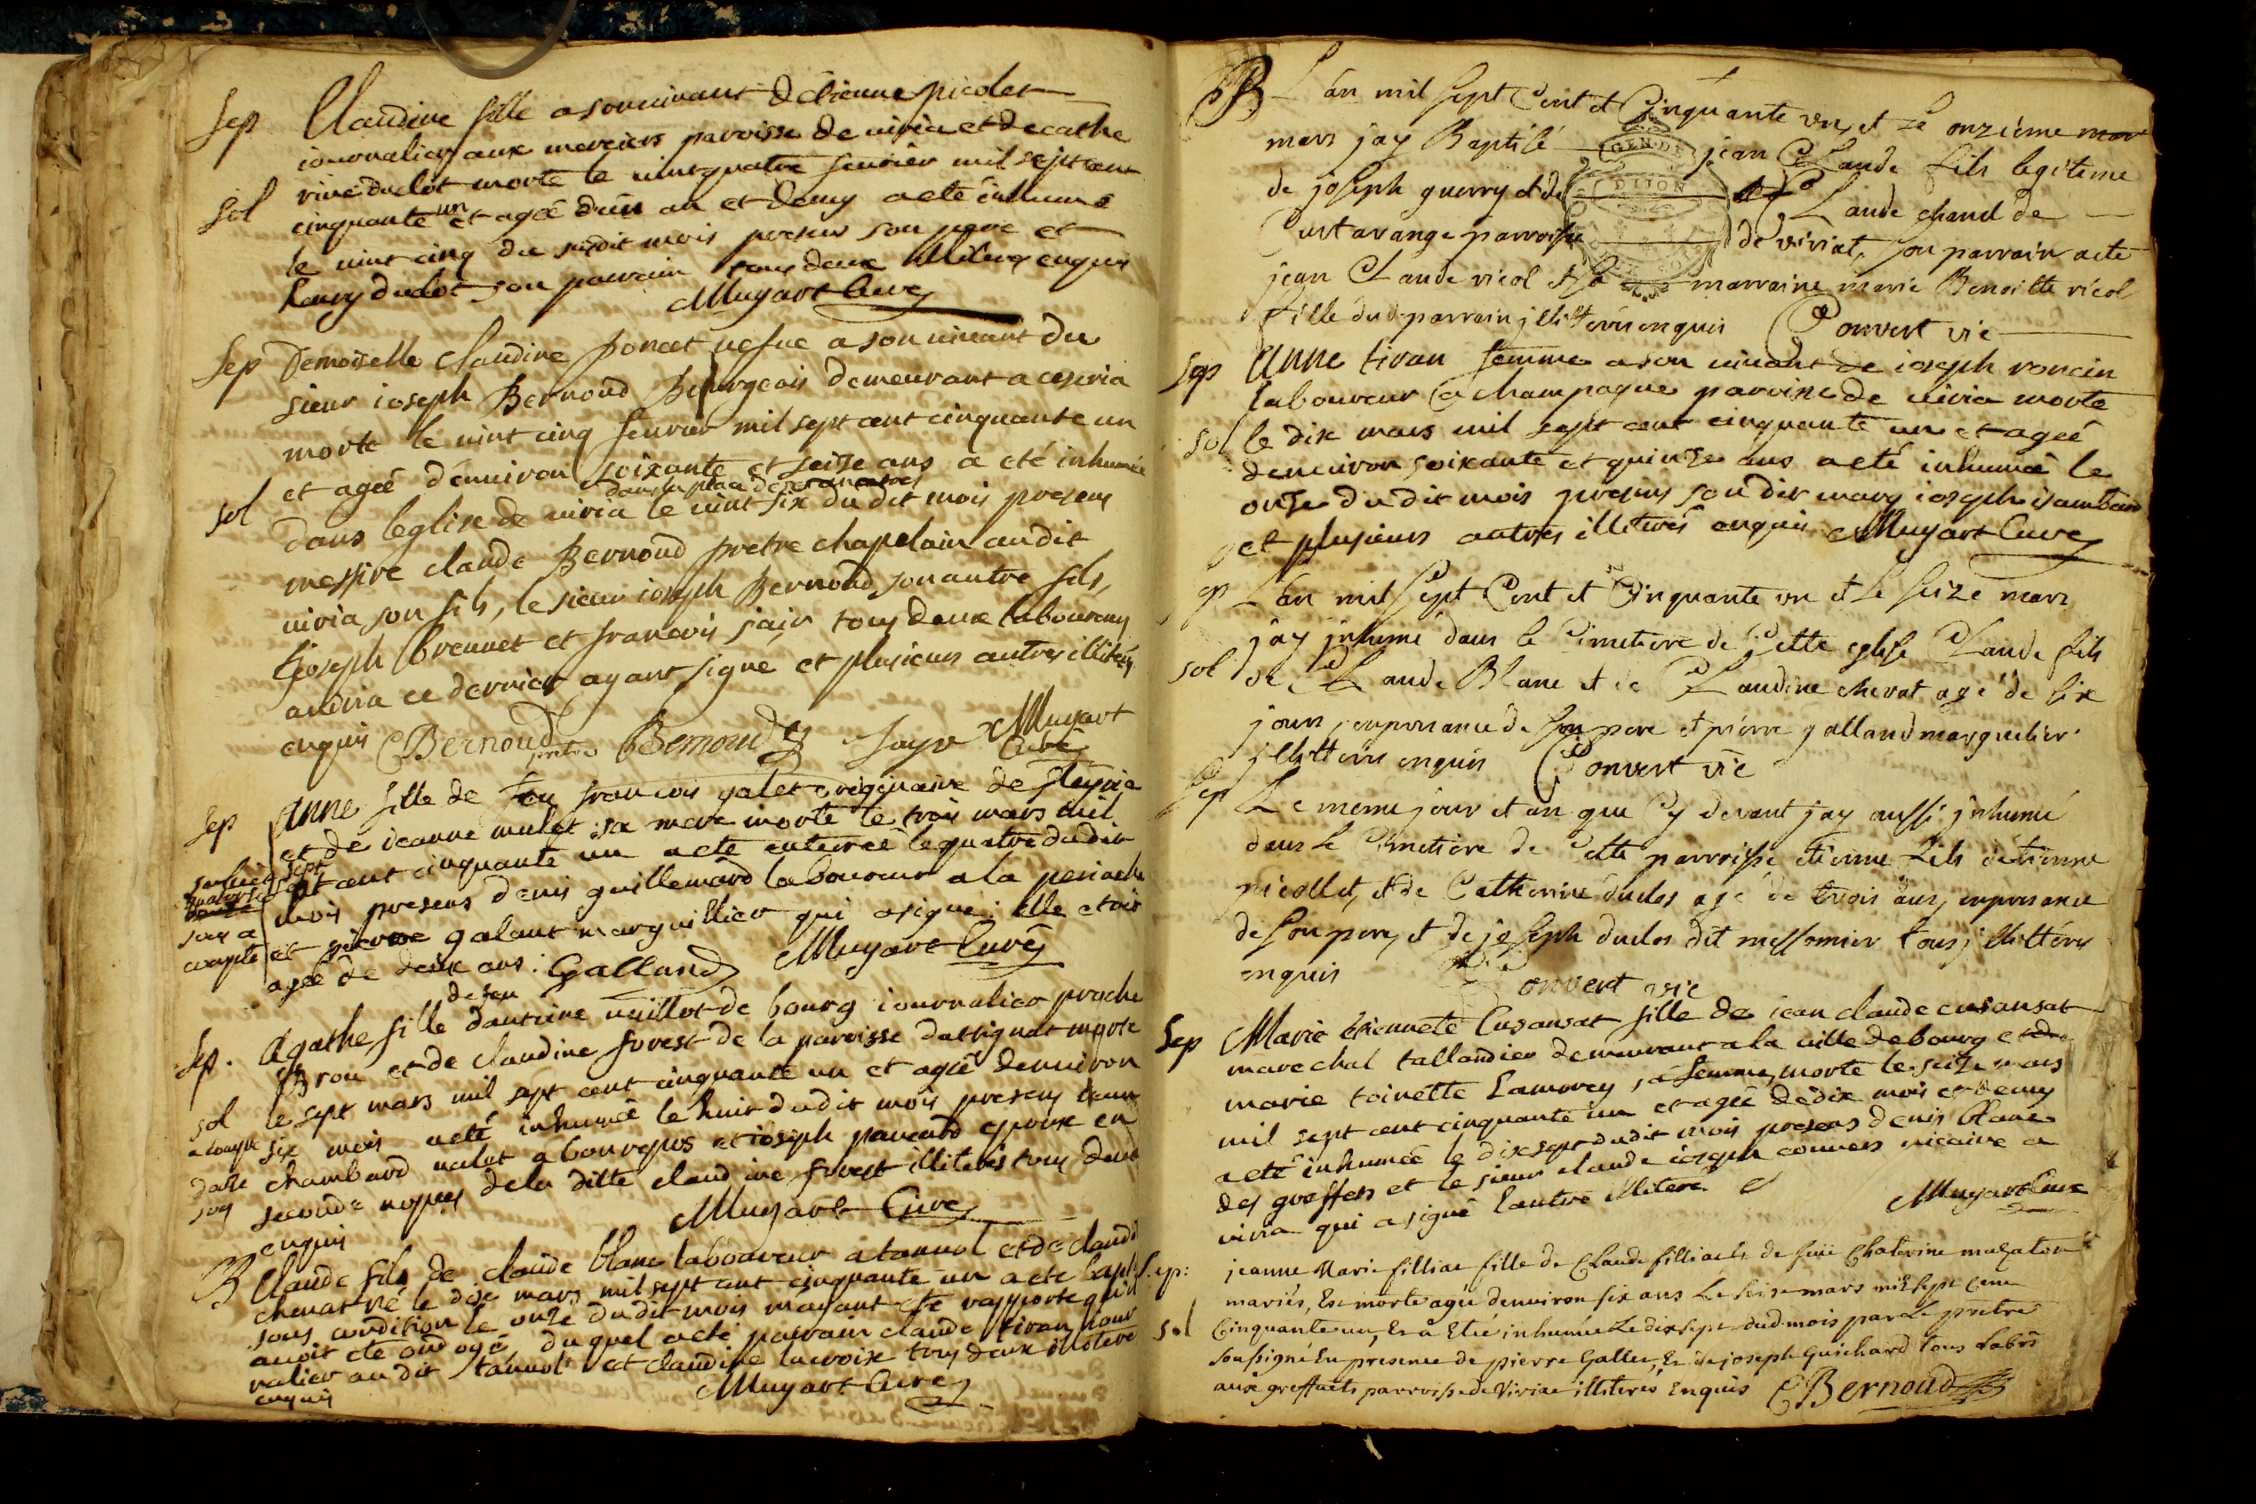 Sep Claudine fille a son vivant d'étienne picolet
journalier aux merciers paroisse de viria et de cathe
rine duclot morte le vint quatre fevrier mil sept cent
sol cinquante un et agée d'un an et demy a eté inhumé
le vint cinq du susdit mois presens son pere et
henry duclot son parrain tous deux illiteres enquis
Muyart Curé
Sep Demoiselle claudine poncet vefue a son vivant du
sieur ioseph Bernoud Bourgeois demeurant a ceseria
morte le vint cinq fevrier mil sept cent cinquante un
et agée d'environ soixante et seize ans a eté inhumée
dans la place de ses ancetres
sol dans l'eglise de viria le vint six du dit mois presens
messire claude Bernoud pretre chapelain audit
viria son fils, le sieur ioseph Bernoud son autre fils,
joseph brennet et francois jair tous deux laboureurs
audit viria ce dernier ayant signé et plusieurs autres illiterés
enquis CBernoud pretre Bernoud Jayr Muyart
Curé
Sep Anne fille de feu francois galet originaire de
et de jeanne mulet sa mere morte le trois mars mil
sept cent cinquante un a eté enterrée le quatre dudit
mois presens denis guillemard laboureur a la
et pierre galant marguillier qui a signé: elle etoit
agée de deux ans: Galland Muyart Curé
de feu
Sep. Agathe fille d'antoine vuillot de bourg iournalier proche
Brou et de claudine forest de la paroisse d'attignat morte
sol le sept mars mil sept cent cinquante un et agée d'environ
a compte six mois a eté inhumée le huit dudit mois presens
chambard valet a bonrepos et ioseph epoux en
seconde nopces de la ditte claudine forest illiterés tous deux
enquis Muyart Curé
B Claude fils de claude blanc laboureur a tannol et de claud
chevat né le dix mars mil sept cent cinquante un a eté bapt
sous condition le onze dudit mois m'ayant eté rapporté qu'il
avoit eté ondoyé, duquel a eté parrain claude tiran jour
nalier au dit tannol et claudine lacroix tous deux illiteré
enquis Muyart Curé
B L'an mil Sept Cent et Cinquante un, et Le onzième
mars jay Baptisé jean Claude fils legitime
GEN. DE
DIJON
de joseph guerry et de Claude chanel de
Curtarange parroisse de viriat, son parrain a eté
jean Claude ricol et Sa marraine marie Benoitte ricol
fille dud parrain illitterés enquis Convert vic
Sep Anne tiran femme a son vivant de ioseph roncin
laboureur a champagne paroisse de viria morte
sol le dix mars mil sept cent cinquante un et agée
d'environ soixante et quinze ans a eté inhumée le
onze du dit mois presens son dit mary ioseph isambard
et plusieurs autres illiterés enquis Muyart Curé
Sep L'an mil Sept Cent et Cinquante un et Le Seize mars
jay inhumé dans le Cimetiere de Cette eglise Claude fils
sol de Claude Blanc et de Claudine chevat agé de Six
jours, en presence de Son pere et pierre galland marguelier
illitterés enquis Convert vic
Sep Le meme jour et an que Cy devant jay aussi inhumé
dans le Cimetiere de Cette parroisse etienne fils d'etienne
picollet, et de Catherine duclos agé de trois ans, en presence
de Son pere, et de joseph duclos dit messonnier tous illitterés
enquis Convert vic
Sep Marie étiennete Cusansat fille de iean claude cusansat
marechal tallandier demeurant a la ville de bourg et de
marie toinette Lamorey sa femme, morte le seize mars
mil sept cent cinquante un et agée de dix mois et demy
a eté inhumée le dix sept dudit mois presens denis blanc
des greffets et le sieur claude ioseph convers vicaire a
viria qui a signé l'autre illiteré Muyart Curé
Sep: jeanne Marie filliac fille de Claude filliac et de fuë Chaterine
mariés, Est morte agée d'environ six ans Le seize mars mil Sept Cent
sol Cinquante un, Et a Eté inhumée Le dix sept dud mois par Le pretre
soussigné En presence de pierre Gallet, Et de joseph Guichard tous Labrs
aux greffuets parroisse de Viriat illiterés Enquis CBernoud